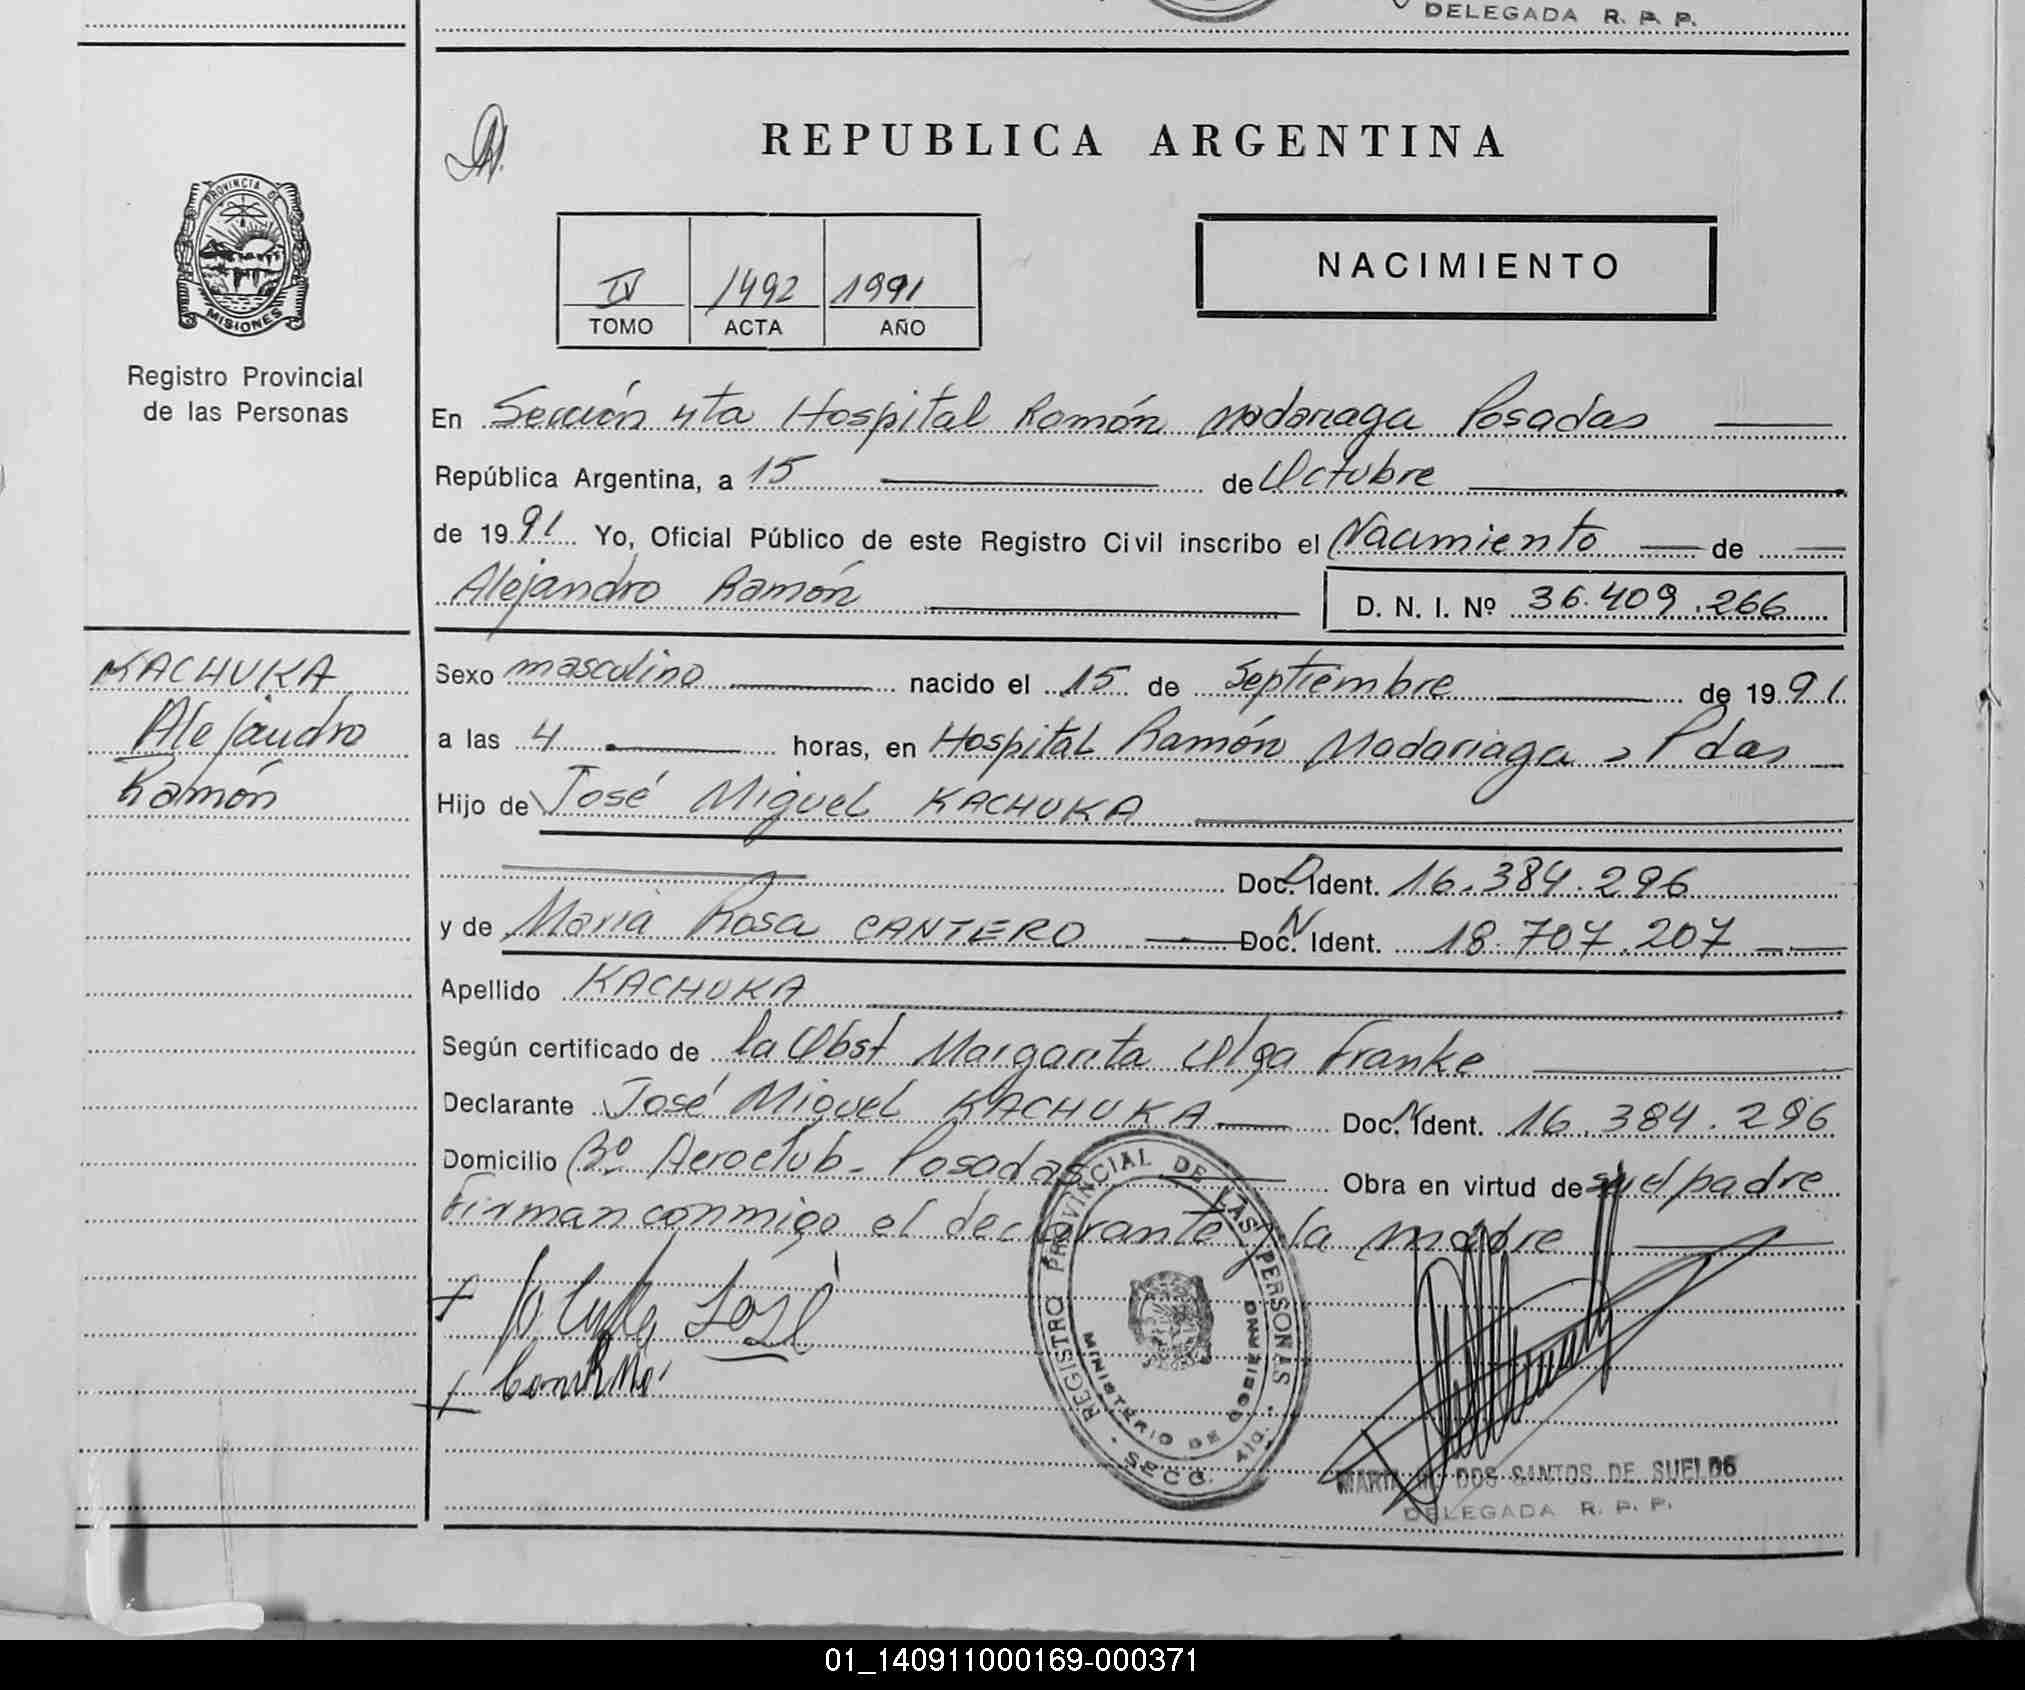 DELEGADA R. P. P.
REPUBLICA ARGENTINA
PROVINCIA DE
MISIONES
Registro Provincial
de las Personas
IV 1492 1991
TOMO ACTA AÑO
NACIMIENTO
En Sección 4ta Hospital Ramón Madariaga Posadas
República Argentina, a 15 de Octubre
de 1991 Yo, Oficial Público de este Registro Civil inscribo el Nacimiento de
Alejandro Ramón D. N. I. Nº 36.409.266
KACHUKA
Alejandro
Ramón
Sexo masculino nacido el 15 de Septiembre de 1991
a las 4 horas, en Hospital Ramón Madariaga, Pdas
Hijo de José Miguel KACHUKA
Doc. Ident. 16.384.296
y de María Rosa CANTERO Doc. Ident. 18.707.207
Apellido KACHUKA
Según certificado de la Obst Margarita Olga Franke
Declarante José Miguel KACHUKA Doc. Ident. 16.384.296
Domicilio Bº Aeroclub - Posadas Obra en virtud de padre
Firman conmigo el declarante y la madre
REGISTRO PROVINCIAL DE LAS PERSONAS
MINISTERIO DE GOBIERNO
SECC. 4ta.
DOS SANTOS DE SUELDO
DELEGADA R. P. P.
01_140911000169-000371